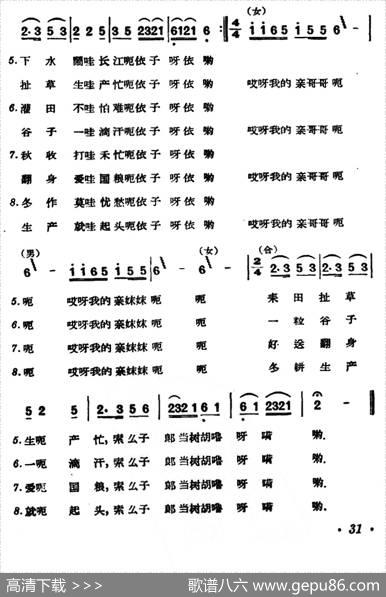 (女)
2·3 5 3 | 2 2 5 | 3 5 2321 | 6121 6 :‖ 4/4 i i 6 5 i 5 5 |
5.下 水 闹哇 长江呃依子 呀依 哟
扯 草 生哇 产忙呃依子 呀依 哟 哎呀我的 亲哥哥 呃
6.灌 田 不哇 怕难呃依子 呀依 哟
谷 子 一哇 滴汗呃依子 呀依 哟 哎呀我的 亲哥哥 呃
7.秋 收 打哇 禾忙呃依子 呀依 哟
翻 身 爱哇 国粮呃依子 呀依 哟 哎呀我的 亲哥哥 呃
8.冬 作 莫哇 忧愁呃依子 呀依 哟
生 产 就哇 起头呃依子 呀依 哟 哎呀我的 亲哥哥 呃
(男) (女) (合)
6 - i i 6 5 i 5 5 | 6 - 6 - | 2/4 2·3 5 3 | 2·3 5 3 |
5.呃 哎呀我的 亲妹妹 呃 呃 来 田 扯 草
6.呃 哎呀我的 亲妹妹 呃 呃 一 粒 谷 子
7.呃 哎呀我的 亲妹妹 呃 呃 好 送 翻 身
8.呃 哎呀我的 亲妹妹 呃 呃 冬 耕 生 产
5 2 5 | 2·3 5 6 | 232 1 6 1 | 6 1 2321 | 2 - ‖
5.生呃 产 忙,索么子 郎当树胡噜 呀 嗬 哟.
6.一呃 滴 汗,索么子 郎当树胡噜 呀 嗬 哟.
7.爱呃 国 粮,索么子 郎当树胡噜 呀 嗬 哟.
8.就呃 起 头,索么子 郎当树胡噜 呀 嗬 哟.
· 31 ·
高清下载 >>> 歌谱八六 www.gepu86.com